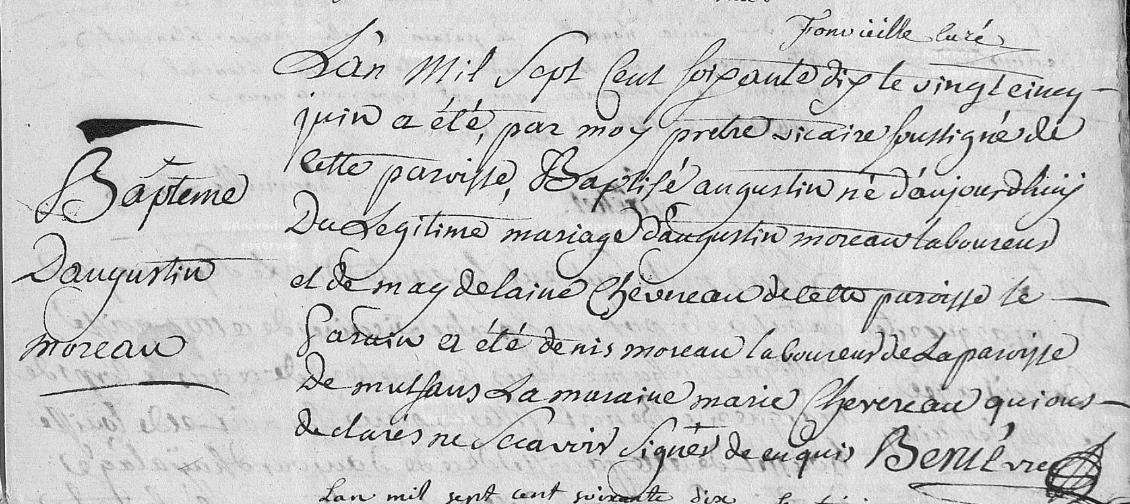 Fonvieille Curé
L'an Mil Sept Cent soixante dix le vingt cinq
juin a été, par moy prebtre vicaire soussigné de
Cette paroisse, Baptisé augustin né d'aujourdhuy
Du Legitime mariage d'augustin moreau laboureur
et de magdelaine Chevereau de cette paroisse le
Parain a été denis moreau laboureur de La paroisse
De La maraine marie Chevereau qui ont
declarés ne Scavoir Signer de ce enquis
Bapteme
D'augustin
moreau
Lan mil sept cent soixante dix